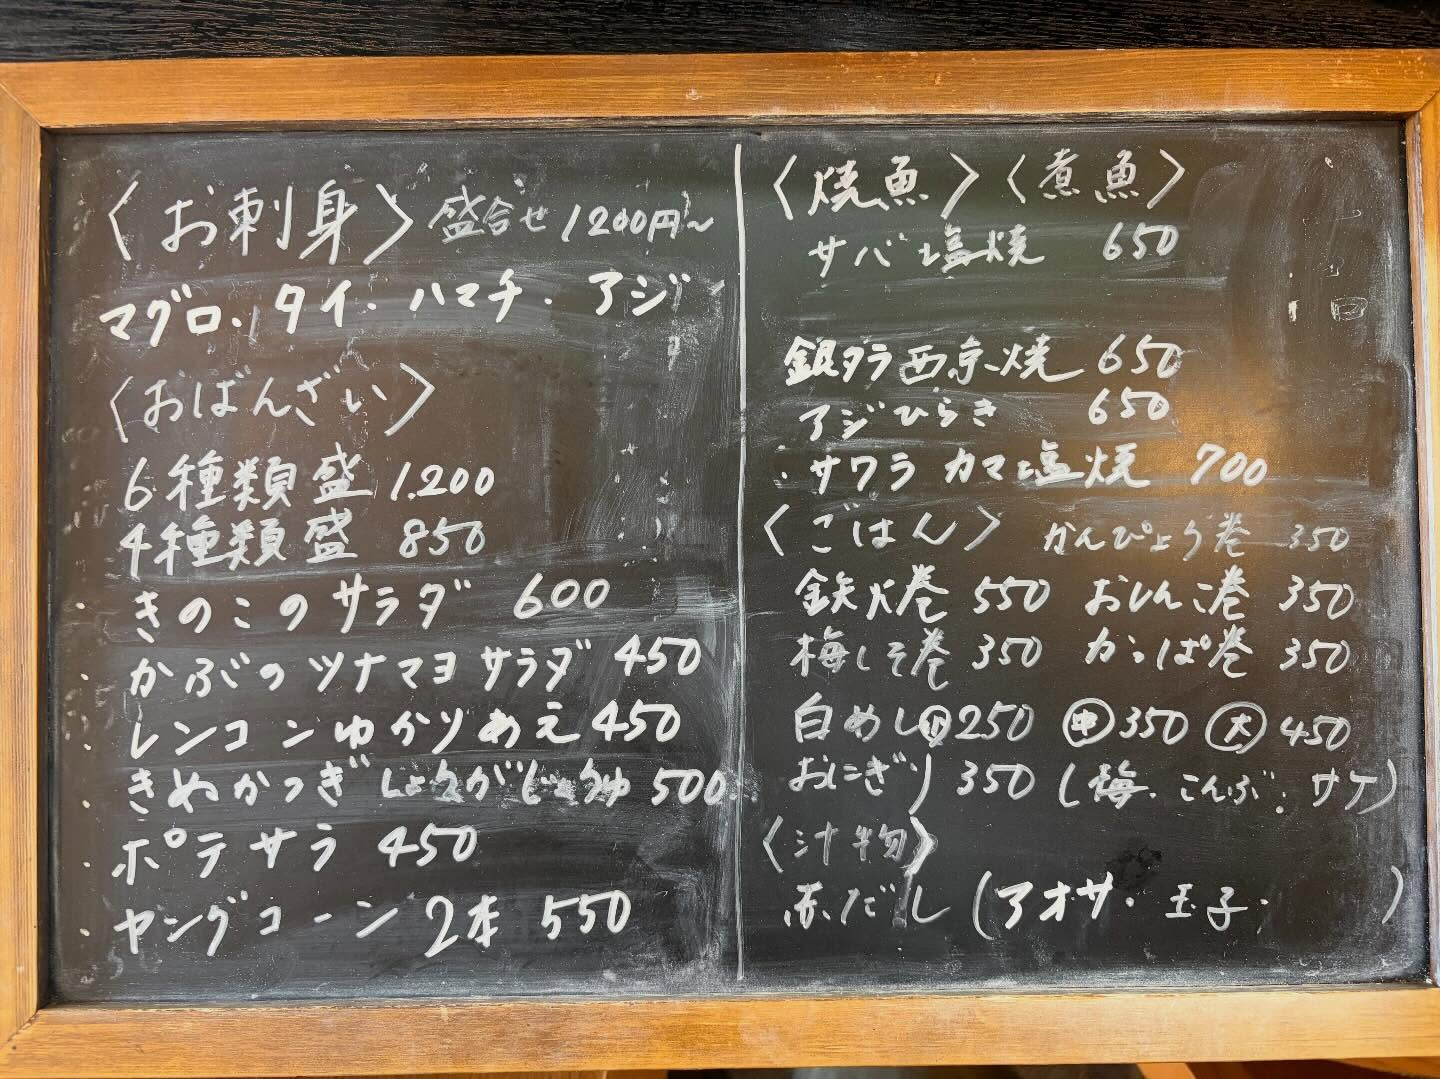 〈お刺身〉盛合せ 1200円〜
マグロ・タイ・ハマチ・アジ
〈おばんざい〉
6種類盛 1.200
4種類盛 850
・きのこのサラダ 600
・かぶのツナマヨサラダ 450
・レンコンゆかりあえ 450
・きぬかつぎ しょうがじょうゆ 500
・ポテサラ 450
・ヤングコーン 2本 550
〈焼魚〉〈煮魚〉
サバ塩焼 650
銀タラ西京焼 650
アジひらき 650
・サワラカマ塩焼 700
〈ごはん〉 かんぴょう巻 350
鉄火巻 550 おしんこ巻 350
梅しそ巻 350 かっぱ巻 350
白めし㊙小250 ㊥350 大 450
おにぎり 350 (梅・こんぶ・サケ)
〈汁物〉
赤だし (アオサ・玉子・ )